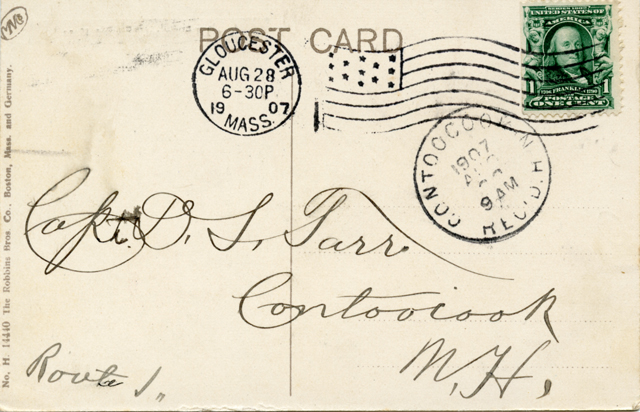 POST CARD
GLOUCESTER
AUG 28
6-30P
1907
MASS.
SERIES 1902
UNITED STATES OF
AMERICA
1 FRANKLIN 1
POSTAGE
ONE CENT
CONTOOCOOK N.H.
1907
AUG
9 AM
REC'D.
Capt. D. S. Tarr
Contoocook
N.H.
Route 1
No. H. 14440 The Robbins Bros. Co., Boston, Mass. and Germany.